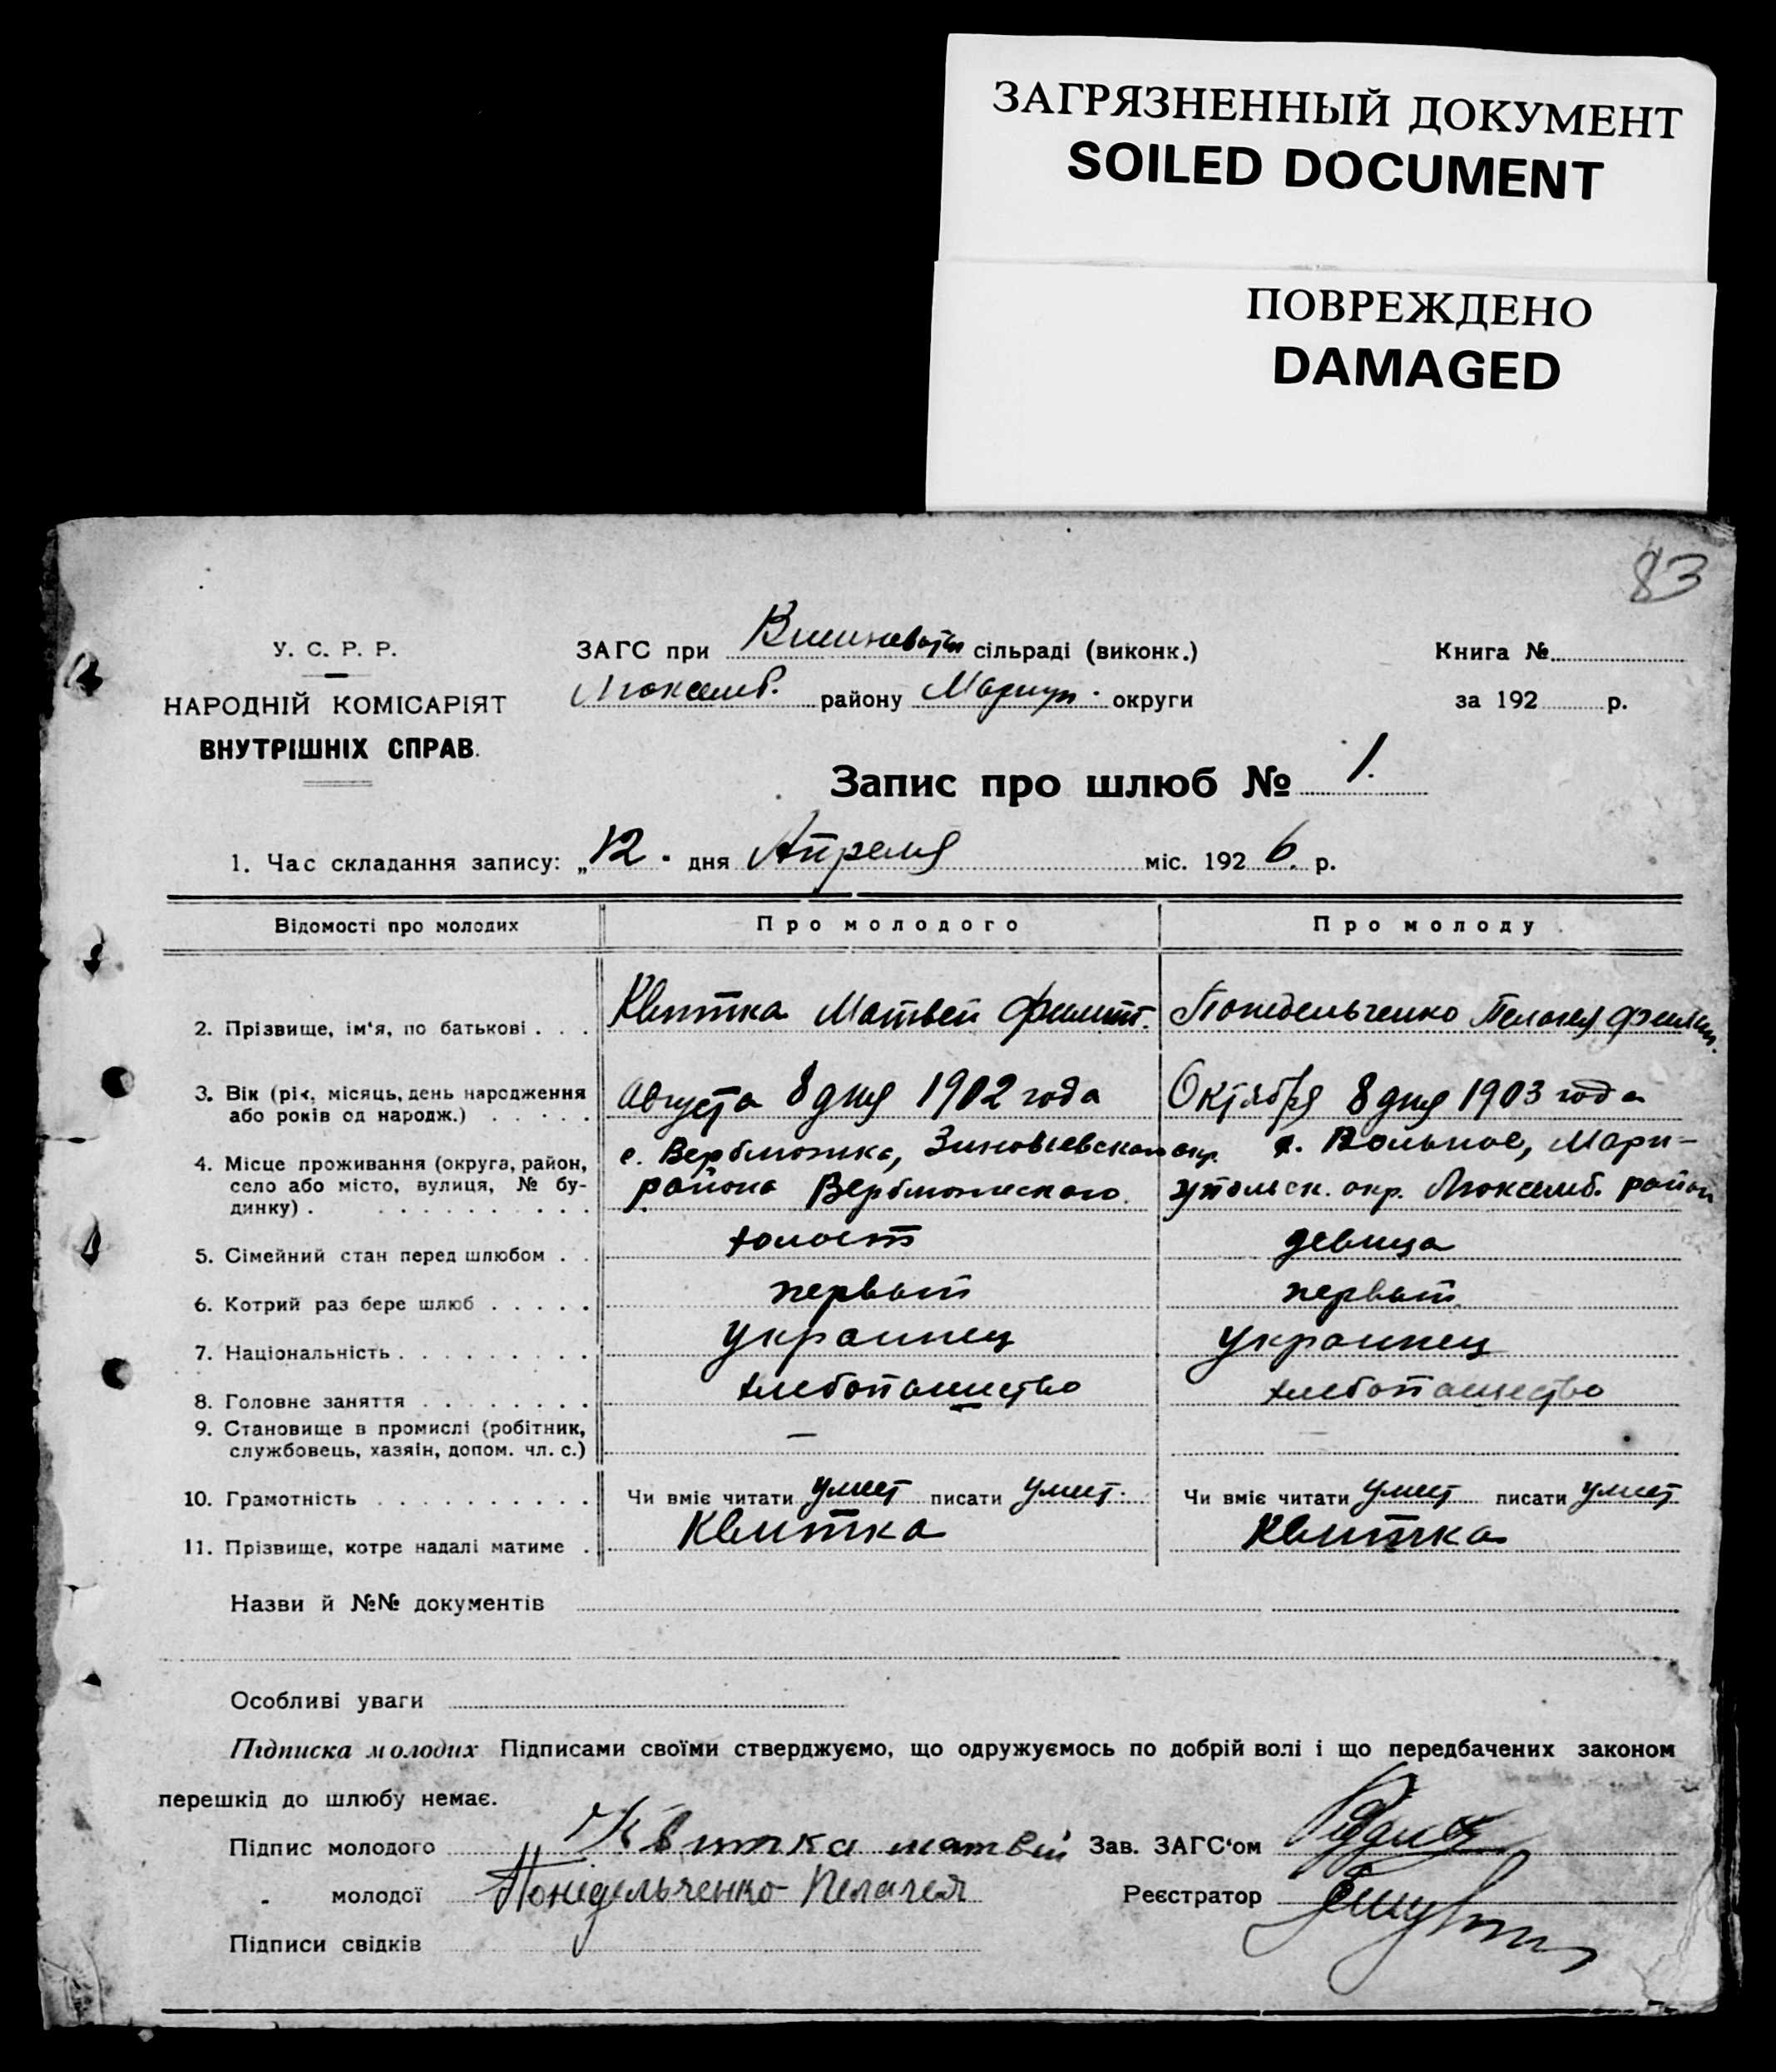 ЗАГРЯЗНЕННЫЙ ДОКУМЕНТ
SOILED DOCUMENT
ПОВРЕЖДЕНО
DAMAGED
83
У. С. Р. Р.
НАРОДНІЙ КОМІСАРІЯТ
ВНУТРІШНІХ СПРАВ.
ЗАГС при сільраді (виконк.)
Люксемб. району Мариуп. округи
Книга №
за 192 р.
Запис про шлюб № 1.
1. Час складання запису: „12" дня Апреля міс. 1926. р.
Відомості про молодих Про молодого Про молоду
2. Прізвище, ім'я, по батькові . . . Квитка Матвей Филип. Понедельченко Пелагея Филип.
3. Вік (рік, місяць, день народження Августа 8 дня 1902 года Октября 8 дня 1903 года
або років од народж.) . . . . .
4. Місце проживання (округа, район, с. Верблюжка, Зиновьевской окр. с. Вольное, Мари-
село або місто, вулиця, № бу- района Верблюжского. упольск. окр. Люксемб. район
динку) . . . . . . . . . . .
5. Сімейний стан перед шлюбом . . холост девица
6. Котрий раз бере шлюб . . . . . первый первый
7. Національність . . . . . . . . . украинец украинец
8. Головне заняття . . . . . . . . хлебопашество хлебопашество
9. Становище в промислі (робітник, —
службовець, хазяїн, допом. чл. с.)
10. Грамотність . . . . . . . . . . Чи вміє читати умеет писати умеет. Чи вміє читати умеет писати умеет
11. Прізвище, котре надалі матиме . Квитка Квитка
Назви й №№ документів
Особливі уваги
Підписка молодих Підписами своїми стверджуємо, що одружуємось по добрій волі і що передбачених законом
перешкід до шлюбу немає.
Підпис молодого Квитка матвей Зав. ЗАГС'ом
„ молодої Понедельченко Пелагея Реєстратор
Підписи свідків